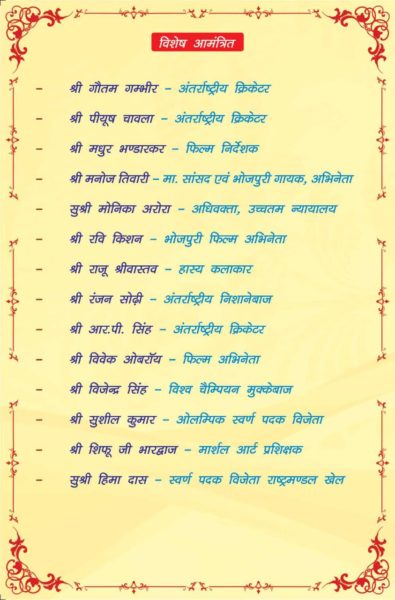 विशेष आमंत्रित
– श्री गौतम गम्भीर – अंतर्राष्ट्रीय क्रिकेटर
– श्री पीयूष चावला – अंतर्राष्ट्रीय क्रिकेटर
– श्री मधुर भण्डारकर – फिल्म निर्देशक
– श्री मनोज तिवारी – मा. सांसद एवं भोजपुरी गायक, अभिनेता
– सुश्री मोनिका अरोरा – अधिवक्ता, उच्चतम न्यायालय
– श्री रवि किशन – भोजपुरी फिल्म अभिनेता
– श्री राजू श्रीवास्तव – हास्य कलाकार
– श्री रंजन सोढ़ी – अंतर्राष्ट्रीय निशानेबाज
– श्री आर.पी. सिंह – अंतर्राष्ट्रीय क्रिकेटर
– श्री विवेक ओबरॉय – फिल्म अभिनेता
– श्री विजेन्द्र सिंह – विश्व चैम्पियन मुक्केबाज
– श्री सुशील कुमार – ओलम्पिक स्वर्ण पदक विजेता
– श्री शिफू जी भारद्वाज – मार्शल आर्ट प्रशिक्षक
– सुश्री हिमा दास – स्वर्ण पदक विजेता राष्ट्रमण्डल खेल